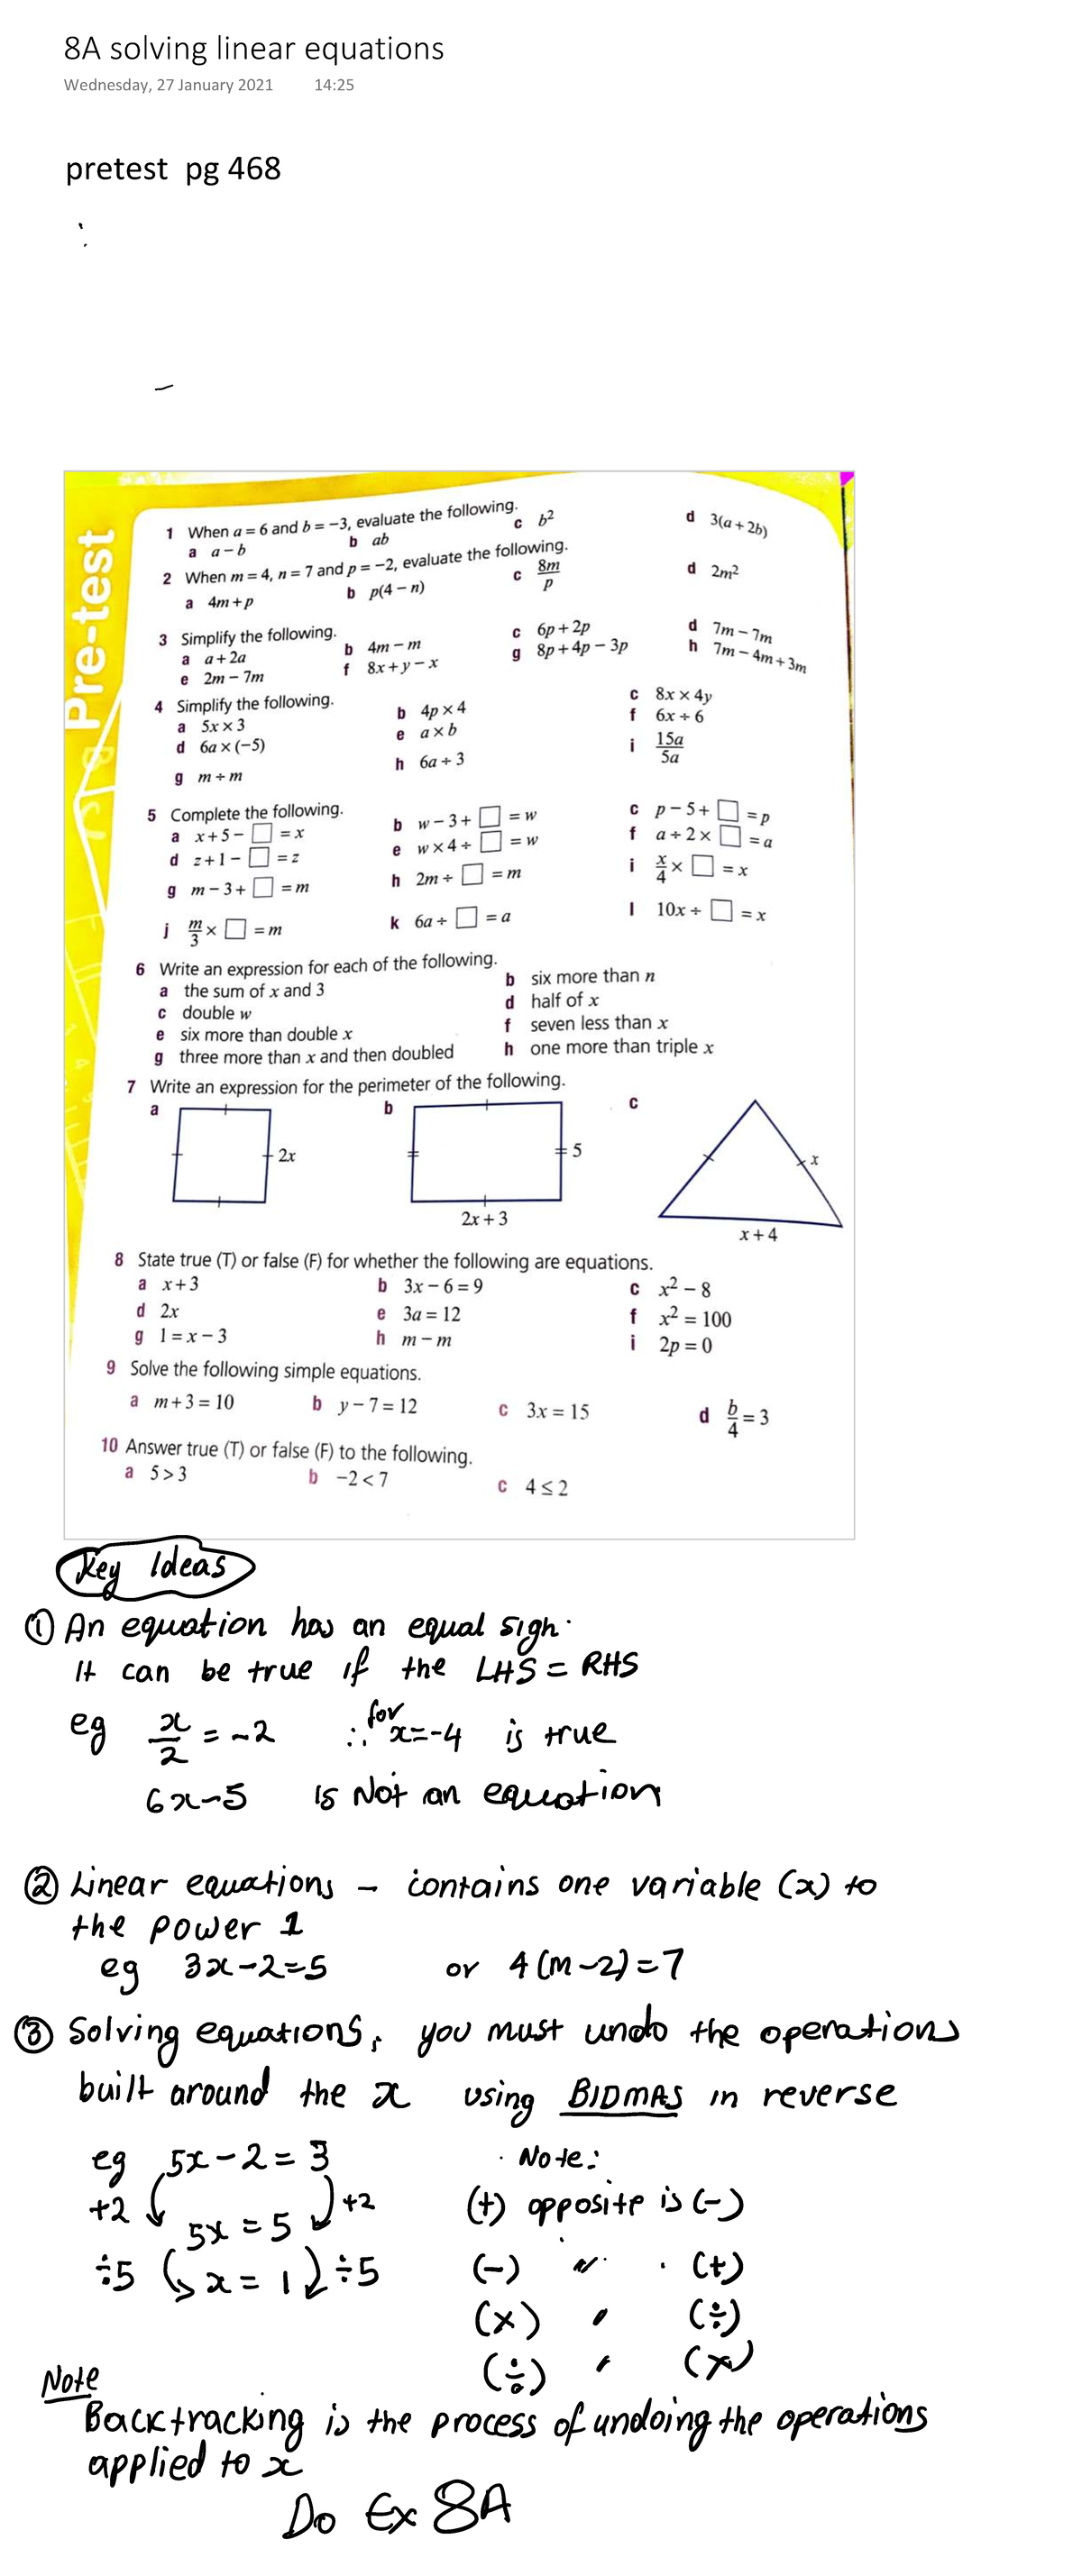 8A solving linear equations
Wednesday, 27 January 2021 14:25
pretest pg 468
Pre-test
1 When a = 6 and b = −3, evaluate the following.
a a − b b ab c b² d 3(a + 2b)
2 When m = 4, n = 7 and p = −2, evaluate the following.
a 4m + p b p(4 − n) c 8m/p d 2m²
3 Simplify the following.
a a + 2a b 4m − m c 6p + 2p d 7m − 7m
e 2m − 7m f 8x + y − x g 8p + 4p − 3p h 7m − 4m + 3m
4 Simplify the following.
a 5x × 3 b 4p × 4 c 8x × 4y
d 6a × (−5) e a × b f 6x ÷ 6
g m ÷ m h 6a ÷ 3 i 15a/5a
5 Complete the following.
a x + 5 − □ = x b w − 3 + □ = w c p − 5 + □ = p
d z + 1 − □ = z e w × 4 ÷ □ = w f a ÷ 2 × □ = a
g m − 3 + □ = m h 2m ÷ □ = m i x/4 × □ = x
j m/3 × □ = m k 6a ÷ □ = a l 10x ÷ □ = x
6 Write an expression for each of the following.
a the sum of x and 3 b six more than n
c double w d half of x
e six more than double x f seven less than x
g three more than x and then doubled h one more than triple x
7 Write an expression for the perimeter of the following.
a b c
2x 5 x
2x + 3 x + 4
8 State true (T) or false (F) for whether the following are equations.
a x + 3 b 3x − 6 = 9 c x² − 8
d 2x e 3a = 12 f x² = 100
g 1 = x − 3 h m − m i 2p = 0
9 Solve the following simple equations.
a m + 3 = 10 b y − 7 = 12 c 3x = 15 d b/4 = 3
10 Answer true (T) or false (F) to the following.
a 5 > 3 b −2 < 7 c 4 ≤ 2
Key Ideas
① An equation has an equal sign.
It can be true if the LHS = RHS
eg x/2 = -2 ∴ for x=-4 is true
6x-5 is Not an equation
② Linear equations - contains one variable (x) to
the power 1
eg 3x-2=5 or 4(m-2)=7
③ Solving equations, you must undo the operations
built around the x using BIDMAS in reverse
eg 5x-2=3 Note:
+2 5x=5 +2 (+) opposite is (-)
÷5 x=1 ÷5 (-) " (+)
(x) " (÷)
(÷) " (x)
Note
Backtracking is the process of undoing the operations
applied to x
Do Ex 8A